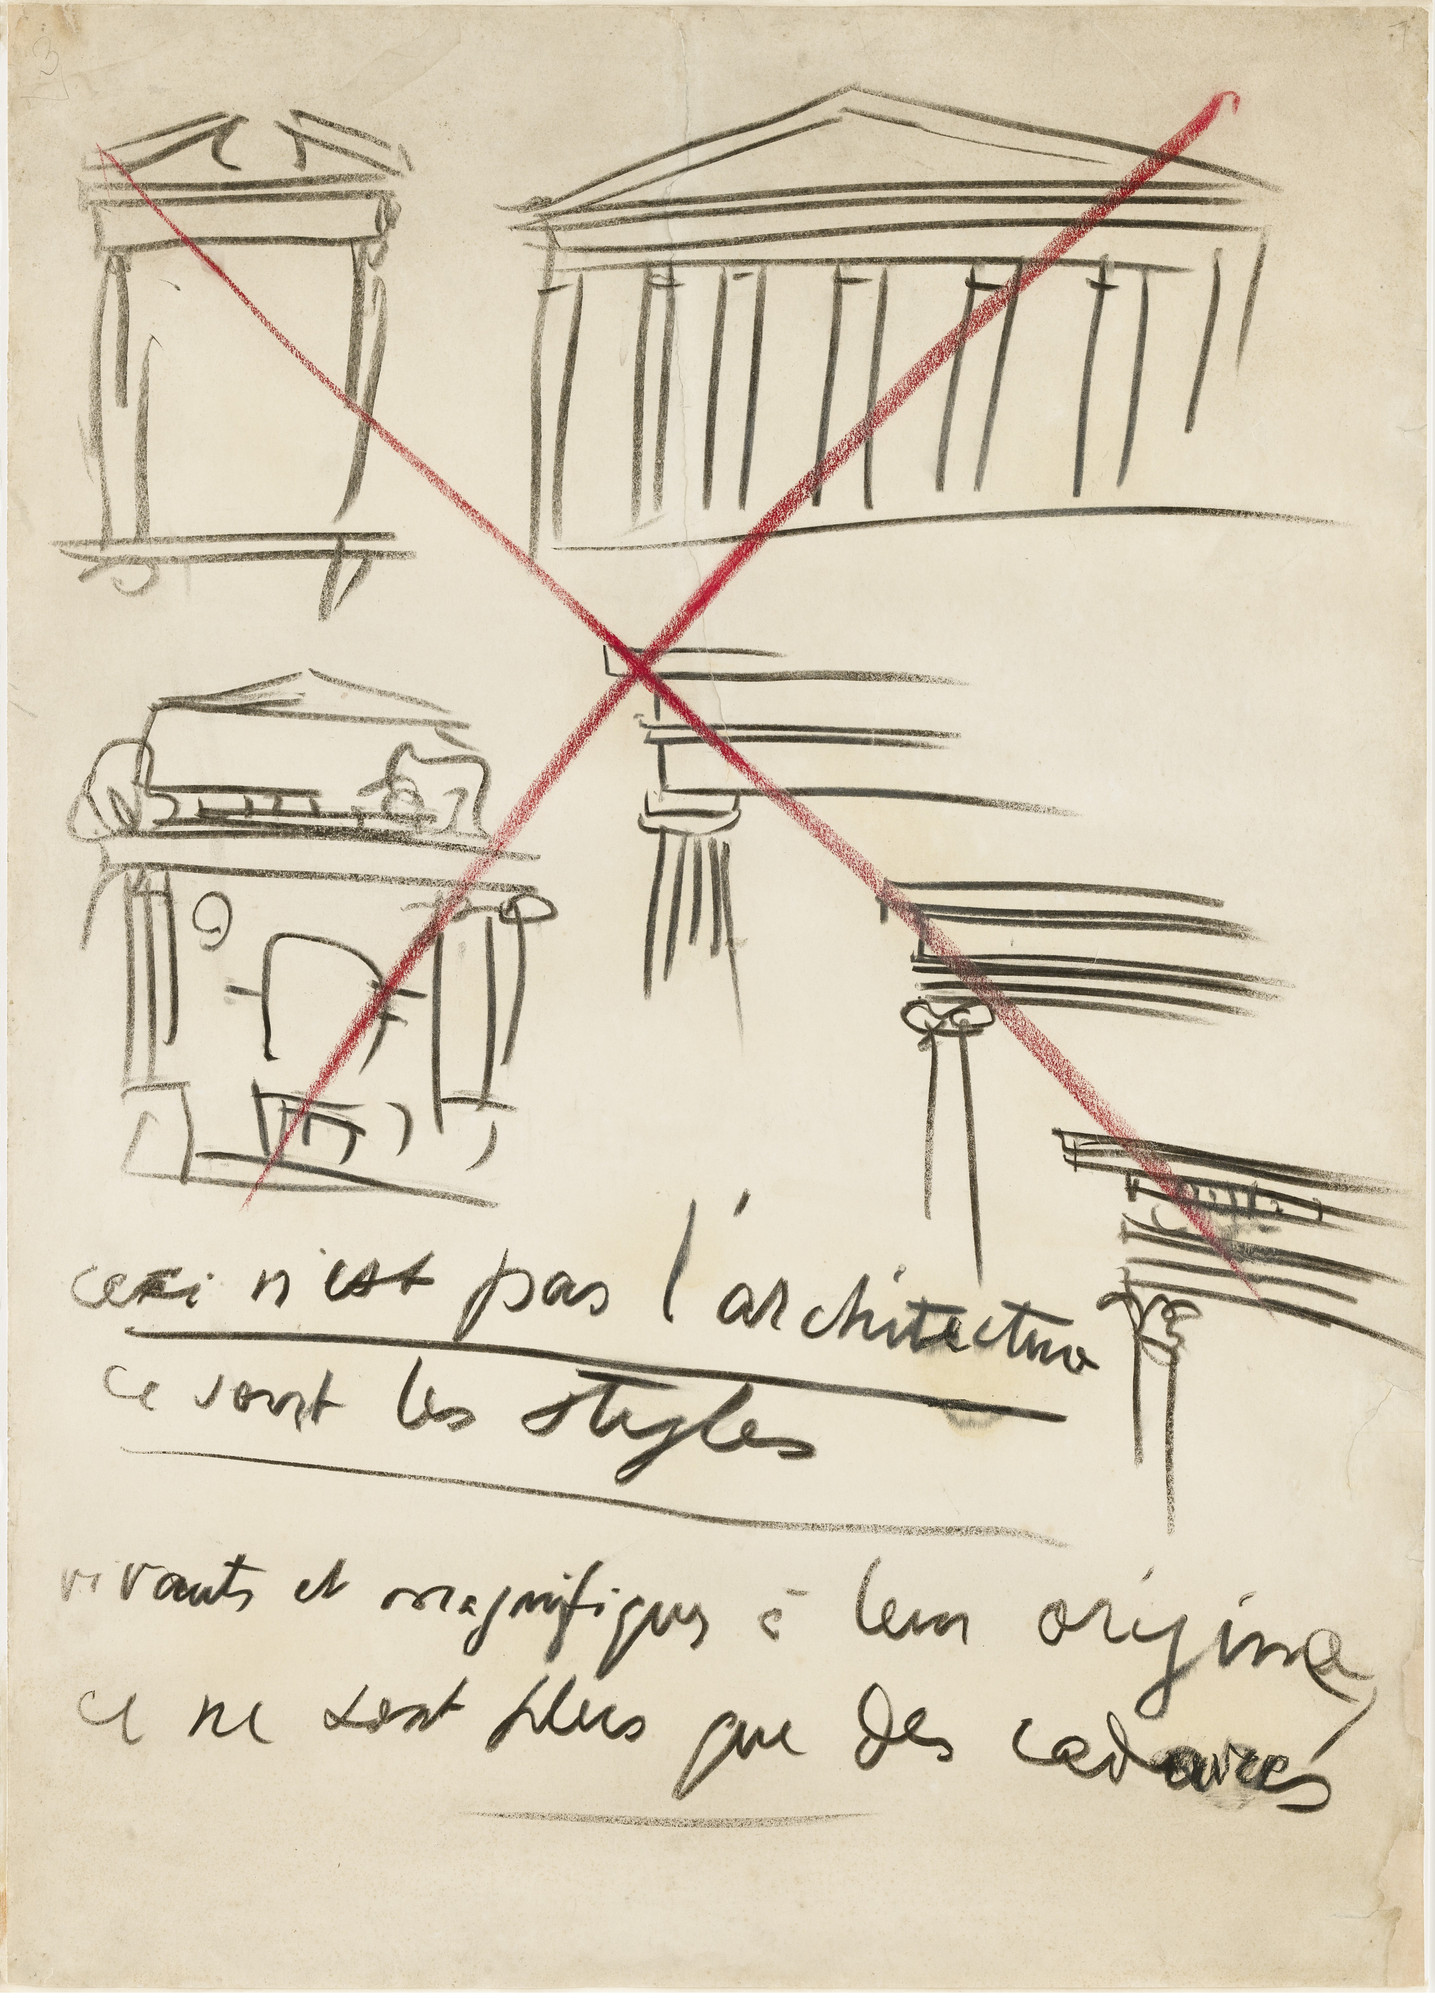 3
ceci n'est pas l'architecture
ce sont les styles
vivants et magnifiques à leur origine,
ce ne sont plus que des cadavres